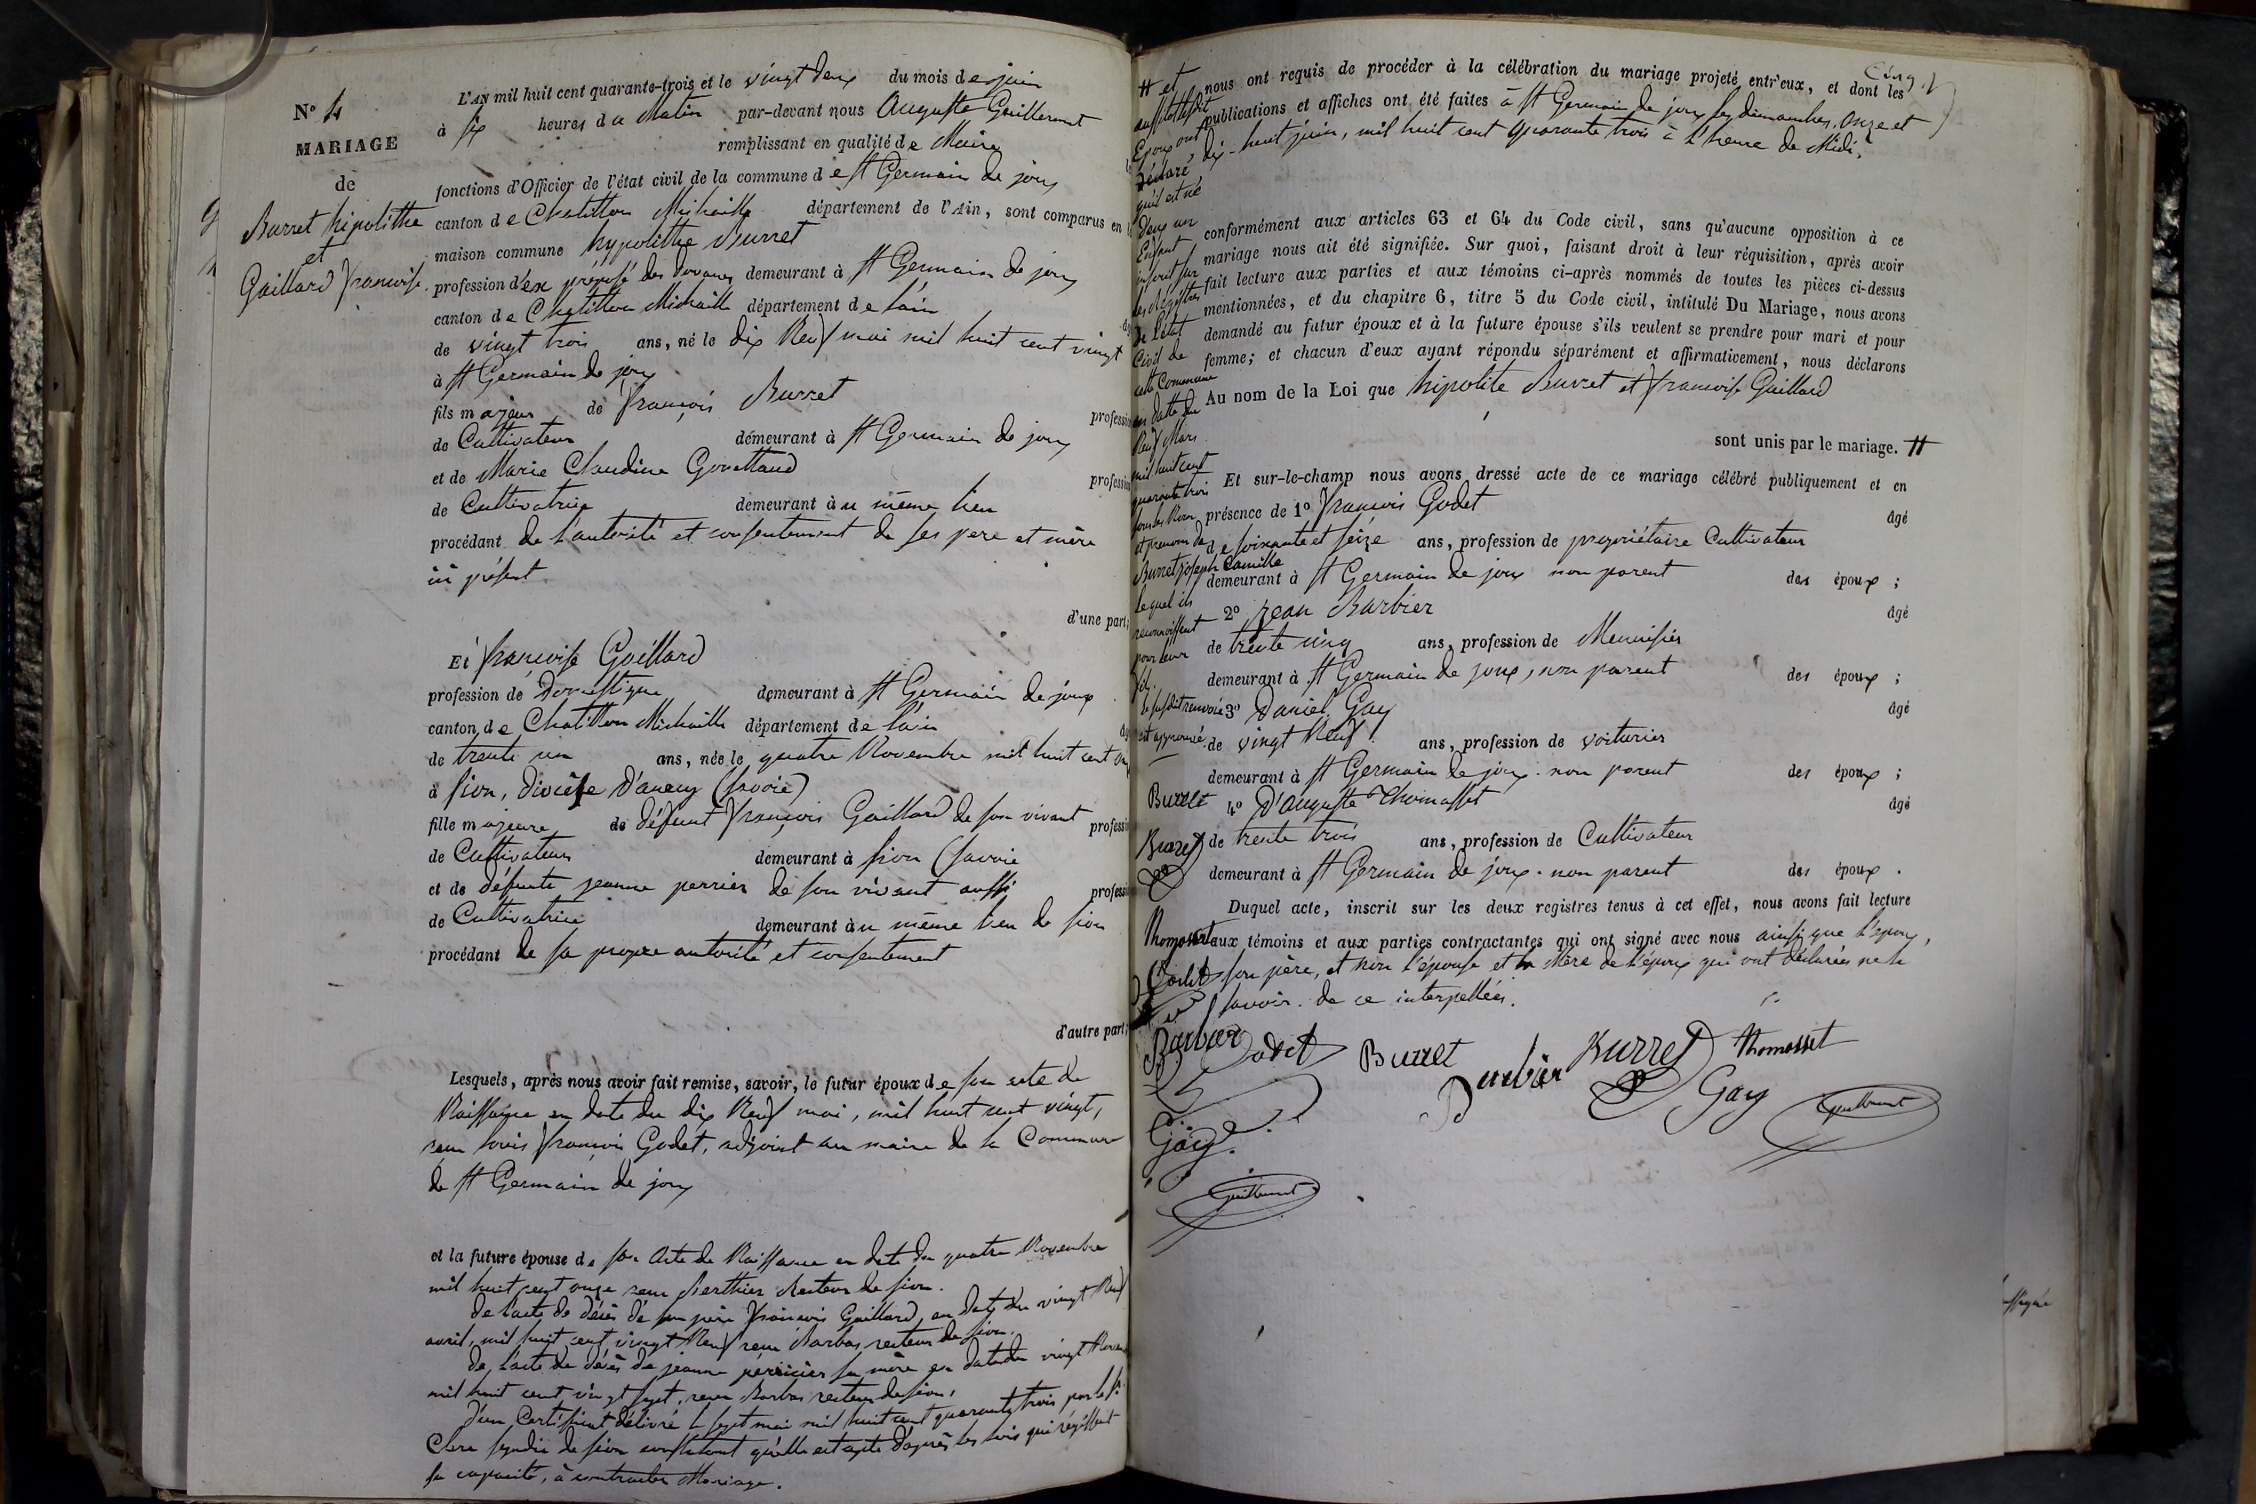 N° 4
MARIAGE
de
Burret hipolithe
et
Gaillard françoise.
L'AN mil huit cent quarante-trois et le vingt deux du mois de juin
à six heures du Matin par-devant nous Auguste Guillermet
remplissant en qualité de Maire
fonctions d'Officier de l'état civil de la commune de St Germain de joux
canton de Chatillon Michaille département de l'Ain, sont comparus en la
maison commune hypolithe Burret
profession d'ex préposé des douanes demeurant à St Germain de joux
canton de Chatillon Michaille département de l'ain
de vingt trois ans, né le dix Neuf mai mil huit cent vingt
à St Germain de joux
fils majeur de françois Burret
profession
de Cultivateur demeurant à St Germain de joux
et de Marie Claudine Gouilloud
profession
de Cultivatrice demeurant au même lieu
procédant de l'autorité et consentement de ses père et mère
ici présent
d'une part;
Et françoise Gaillard
profession de Domestique demeurant à St Germain de joux
canton de Chatillon Michaille département de l'ain
de trente un ans, née le quatre Novembre mil huit cent onze
à Sion, diocèse d'anecy (Savoie)
fille majeure de défunt françois Gaillard de son vivant profession
de Cultivateur demeurant à Sion (Savoie
et de défunte jeanne perrier de son vivant aussi profession
de Cultivatrice demeurant au même lieu de Sion
procédant de sa propre autorité et consentement
d'autre part;
Lesquels, après nous avoir fait remise, savoir, le futur époux de son acte de
Naissance en date du dix Neuf mai, mil huit cent vingt,
reçu Louis françois Godet, adjoint au maire de la Commune
de St Germain de joux
et la future épouse de son Acte de Naissance en date du quatre Novembre
mil huit cent onze reçu Berthier Recteur de Sion.
De l'acte de décès de son père françois Gaillard en date du vingt Neuf
avril, mil huit cent vingt Neuf reçu Barbas recteur de Sion.
De l'acte de décès de jeanne perricier sa mère en date du vingt Novembre
mil huit cent vingt sept, reçu Barbas recteur de Sion,
D'un Certificat délivré le sept mai mil huit cent quarante trois par le Sr.
Clerc syndic de Sion constatant qu'elle est apte d'après les lois qui régissent
sa capacité, à contracter Mariage.
Cinq
nous ont requis de procéder à la célébration du mariage projeté entr'eux, et dont les
publications et affiches ont été faites à St Germain de joux les dimanches, onze et
dix-huit juin, mil huit cent quarante trois à l'heure de Midi,
conformément aux articles 63 et 64 du Code civil, sans qu'aucune opposition à ce
mariage nous ait été signifiée. Sur quoi, faisant droit à leur réquisition, après avoir
fait lecture aux parties et aux témoins ci-après nommés de toutes les pièces ci-dessus
mentionnées, et du chapitre 6, titre 5 du Code civil, intitulé Du Mariage, nous avons
demandé au futur époux et à la future épouse s'ils veulent se prendre pour mari et pour
femme; et chacun d'eux ayant répondu séparément et affirmativement, nous déclarons
Au nom de la Loi que hipolite Burret et françoise Gaillard
sont unis par le mariage. #
Et sur-le-champ nous avons dressé acte de ce mariage célébré publiquement et en
présence de 1° françois Godet âgé
de soixante et seize ans, profession de propriétaire Cultivateur
demeurant à St Germain de joux non parent des époux;
2° jean Barbier âgé
de trente cinq ans, profession de Menuisier
demeurant à St Germain de joux, non parent des époux;
3° Daniel Gay âgé
de vingt Neuf ans, profession de voiturier
demeurant à St Germain de joux. non parent des époux;
4° D'Auguste Thomasset âgé
de trente trois ans, profession de Cultivateur
demeurant à St Germain de joux. non parent des époux.
Duquel acte, inscrit sur les deux registres tenus à cet effet, nous avons fait lecture
aux témoins et aux parties contractantes qui ont signé avec nous ainsi que l'époux,
son père, et non l'épouse et la Mère de l'époux qui ont déclarées ne le
savoir. de ce interpellées.
Godet Burret Barbier Burret Thomasset
Gay Guillermet
# et
aussitôt lesdits
Epoux ont
déclaré
qu'il est né
d'eux un
Enfant
inscrit sur
les Régistres
de l'état
Civil de
cette Commune
en datte du
Neuf Mars
mil huit cent
quarante trois
sous les Nom
et prenom de
Burret joseph Camille
lequel ils
reconnoissent
pour leur
fils.
le susdit renvoie
est approuvé
Burret
Burret
Thomasset
Godet
Barbier
Gay
Guillermet